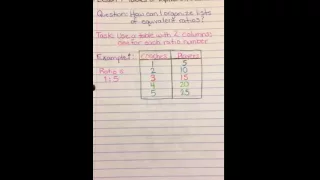 Question: How can I organize lists
of equivalent ratios?
Task: Use a table with 2 columns
one for each ratio number
Example:
Ratio is
1:5
Coaches Players
1 5
2 10
3 15
4 20
5 25